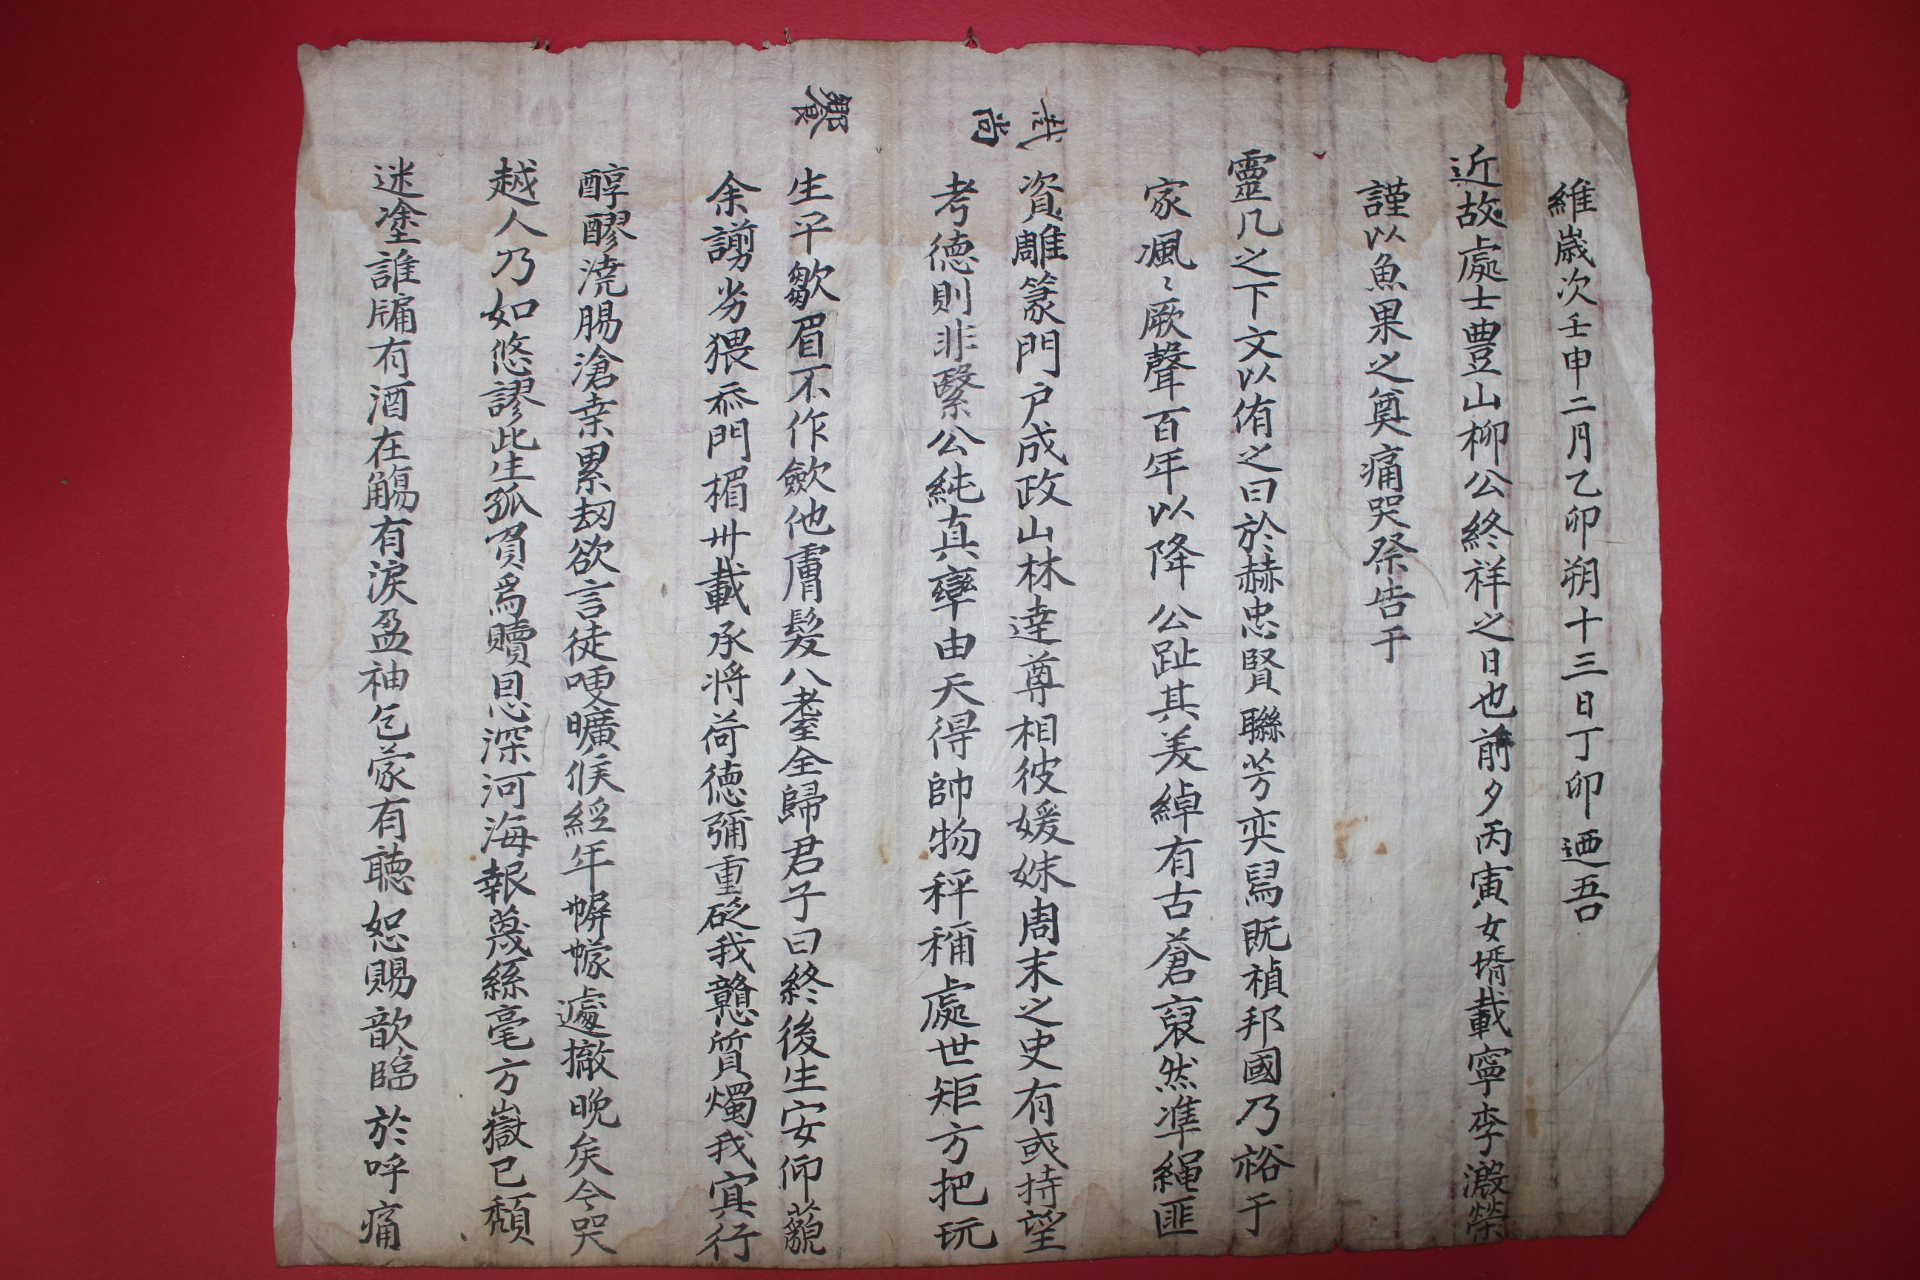 維歲次壬申二月乙卯朔十三日丁卯迺吾
近故處士豊山柳公終祥之日也前夕丙寅女壻載寧李澱榮
謹以魚果之奠痛哭祭告于
靈几之下文以侑之曰於赫忠賢聯芳奕舃旣禎邦國乃裕于
家渢〻厥聲百年以降公趾其美綽有古蒼裒然準繩匪
資雕篆門戶成政山林達尊相彼媛姝周末之史有或持望
考德則非繄公純眞率由天得帥物秤稱處世矩方把玩
生平皺眉不作歛他膚髮八耋全歸君子曰終後生安仰藐
余謭劣猥忝門楣卅載承將荷德彌重砭我戇質燭我冥行
醇醪澆腸滄桑累刼欲言徒哽曠候經年帲幪遽撤晩矣今哭
越人乃如悠謬此生孤負爲贖恩深河海報蔑絲毫方嶽已頹
迷塗誰牖有酒在觴有淚盈袖乞蒙有聽恕賜歆臨於呼痛
尙
饗